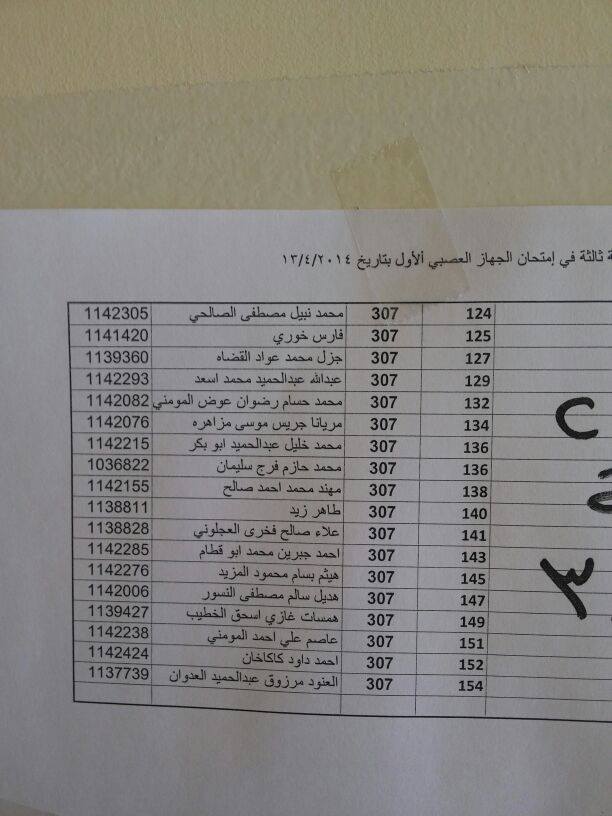 ة ثالثة في إمتحان الجهاز العصبي ألأول بتاريخ ١٣/٤/٢٠١٤
124 307 محمد نبيل مصطفى الصالحي 1142305
125 307 فارس خوري 1141420
127 307 جزل محمد عواد القضاه 1139360
129 307 عبدالله عبدالحميد محمد اسعد 1142293
132 307 محمد حسام رضوان عوض المومني 1142082
134 307 مريانا جريس موسى مزاهره 1142076
136 307 محمد خليل عبدالحميد ابو بكر 1142215
136 307 محمد حازم فرج سليمان 1036822
138 307 مهند محمد احمد صالح 1142155
140 307 طاهر زيد 1138811
141 307 علاء صالح فخرى العجلوني 1138828
143 307 احمد جبرين محمد ابو قطام 1142285
145 307 هيثم بسام محمود المزيد 1142276
147 307 هديل سالم مصطفى النسور 1142006
149 307 همسات غازي اسحق الخطيب 1139427
151 307 عاصم علي احمد المومني 1142238
152 307 احمد داود كاكاخان 1142424
154 307 العنود مرزوق عبدالحميد العدوان 1137739
٣